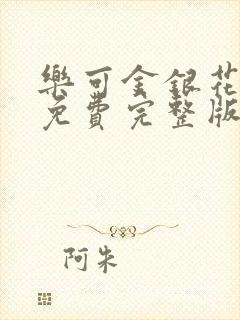 樂可金銀花
免費完整版
阿朱